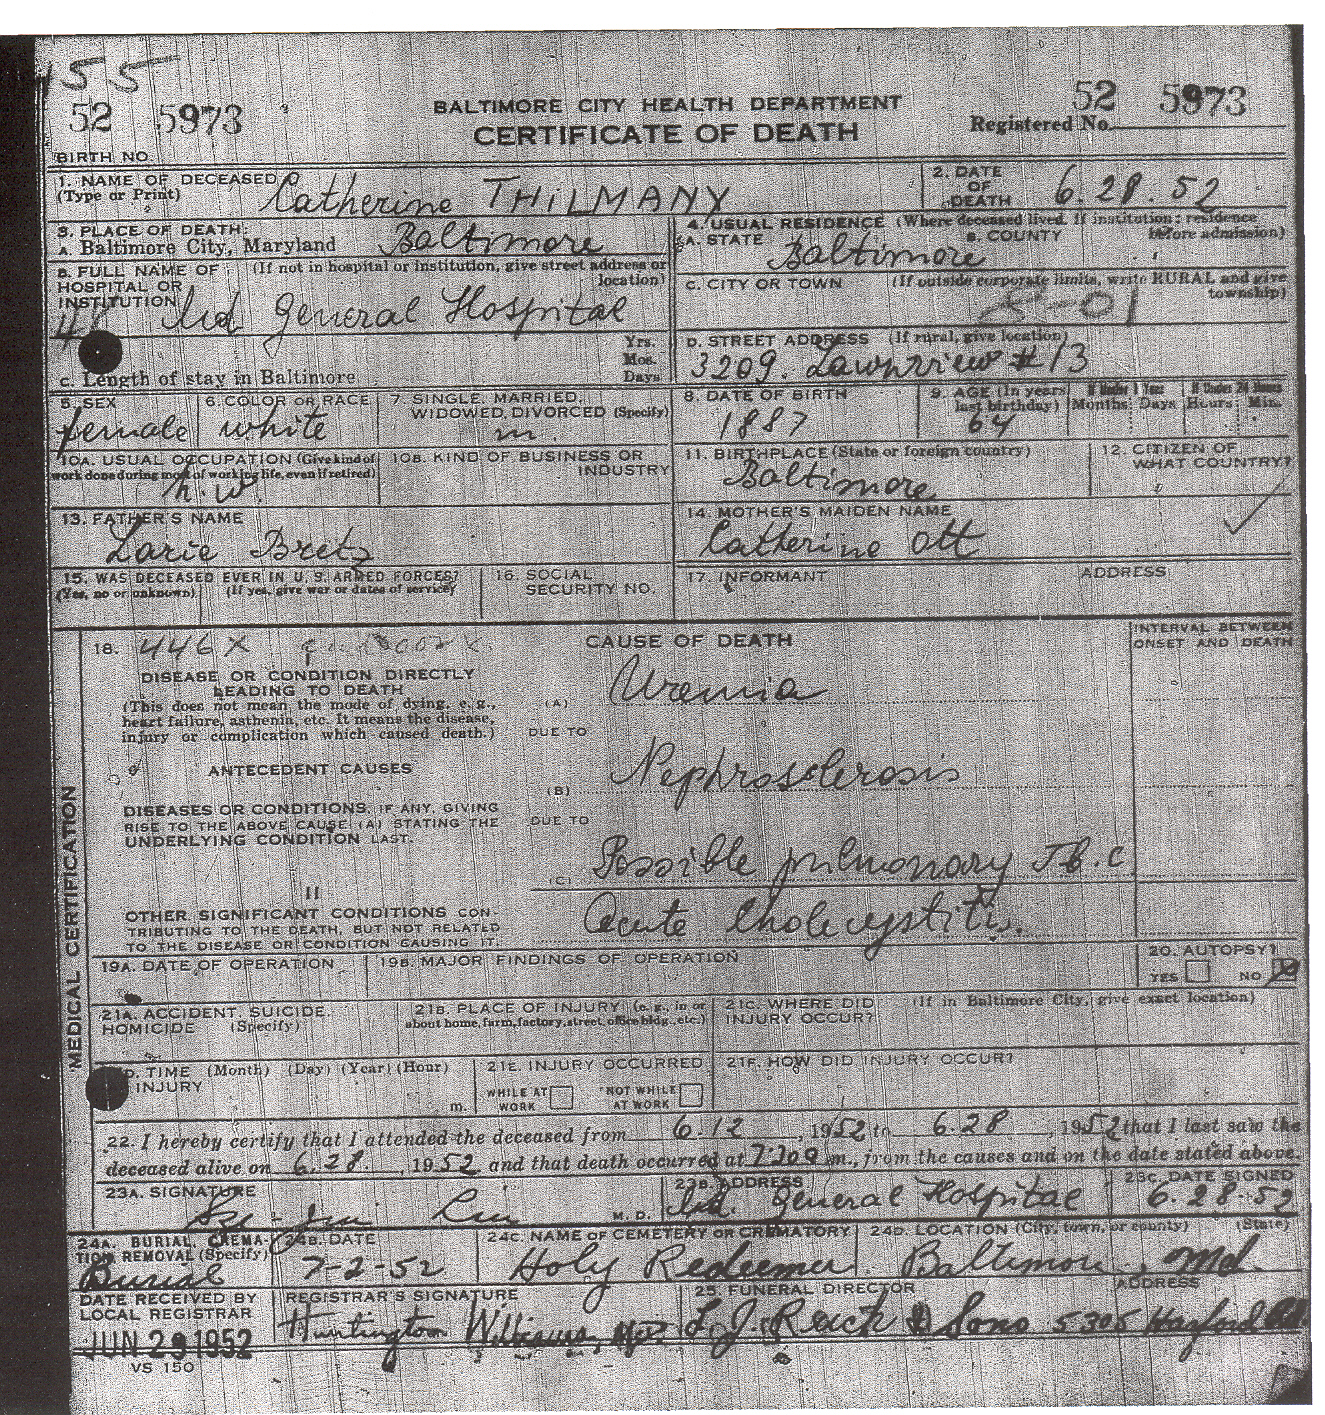 155
52 5973
BALTIMORE CITY HEALTH DEPARTMENT
CERTIFICATE OF DEATH
52 5973
Registered No.
BIRTH NO.
1. NAME OF DECEASED
(Type or Print)
Catherine THILMANY
2. DATE
OF
DEATH
6.28.52
3. PLACE OF DEATH:
A. Baltimore City, Maryland Baltimore
4. USUAL RESIDENCE (Where deceased lived. If institution: residence
before admission)
A. STATE B. COUNTY
Baltimore
B. FULL NAME OF (If not in hospital or institution, give street address or
HOSPITAL OR location)
INSTITUTION
Md General Hospital
C. CITY OR TOWN (If outside corporate limits, write RURAL and give
township)
Yrs.
Mos.
Days
C. Length of stay in Baltimore
D. STREET ADDRESS (If rural, give location)
3209. Lawnview #13
5. SEX
female
6. COLOR OR RACE
white
7. SINGLE, MARRIED,
WIDOWED, DIVORCED (Specify)
m.
8. DATE OF BIRTH
1887
9. AGE (In years
last birthday)
64
If Under 1 Year
Months Days
If Under 24 Hours
Hours Min.
10A. USUAL OCCUPATION (Give kind of
work done during most of working life, even if retired)
h.w.
10B. KIND OF BUSINESS OR
INDUSTRY
11. BIRTHPLACE (State or foreign country)
Baltimore
12. CITIZEN OF
WHAT COUNTRY?
13. FATHER'S NAME
Larie Bretz
14. MOTHER'S MAIDEN NAME
Catherine Ott
15. WAS DECEASED EVER IN U. S. ARMED FORCES?
(Yes, no or unknown) (If yes, give war or dates of service)
16. SOCIAL
SECURITY NO.
17. INFORMANT ADDRESS
MEDICAL CERTIFICATION
18. 446X
CAUSE OF DEATH
INTERVAL BETWEEN
ONSET AND DEATH
DISEASE OR CONDITION DIRECTLY
LEADING TO DEATH
(This does not mean the mode of dying, e. g.,
heart failure, asthenia, etc. It means the disease,
injury or complication which caused death.)
(A) Uremia
DUE TO
ANTECEDENT CAUSES
(B) Nephrosclerosis
DISEASES OR CONDITIONS, IF ANY, GIVING
RISE TO THE ABOVE CAUSE (A) STATING THE
UNDERLYING CONDITION LAST.
DUE TO
(C) Possible pulmonary T.b.c
II
OTHER SIGNIFICANT CONDITIONS CON-
TRIBUTING TO THE DEATH, BUT NOT RELATED
TO THE DISEASE OR CONDITION CAUSING IT.
Acute Cholecystitis.
19A. DATE OF OPERATION
19B. MAJOR FINDINGS OF OPERATION
20. AUTOPSY?
YES NO
21A. ACCIDENT, SUICIDE,
HOMICIDE (Specify)
21B. PLACE OF INJURY (e. g., in or
about home, farm, factory, street, office bldg., etc.)
21C. WHERE DID (If in Baltimore City, give exact location)
INJURY OCCUR?
D. TIME (Month) (Day) (Year) (Hour)
INJURY
m.
21E. INJURY OCCURRED
WHILE AT
WORK
NOT WHILE
AT WORK
21F. HOW DID INJURY OCCUR?
22. I hereby certify that I attended the deceased from 6.12, 1952 to 6.28, 1952 that I last saw the
deceased alive on 6.28, 1952 and that death occurred at m., from the causes and on the date stated above.
23A. SIGNATURE
M. D.
23B. ADDRESS
Md. General Hospital
23C. DATE SIGNED
6.28.52
24A. BURIAL, CREMA-
TION REMOVAL (Specify)
Burial
24B. DATE
7-2-52
24C. NAME OF CEMETERY OR CREMATORY
Holy Redeemer
24D. LOCATION (City, town, or county) (State)
Baltimore, Md.
DATE RECEIVED BY
LOCAL REGISTRAR
JUN 29 1952
REGISTRAR'S SIGNATURE
Huntington Williams, M.D.
25. FUNERAL DIRECTOR ADDRESS
L. J. Ruck & Sons 5305 Harford Rd
VS 150